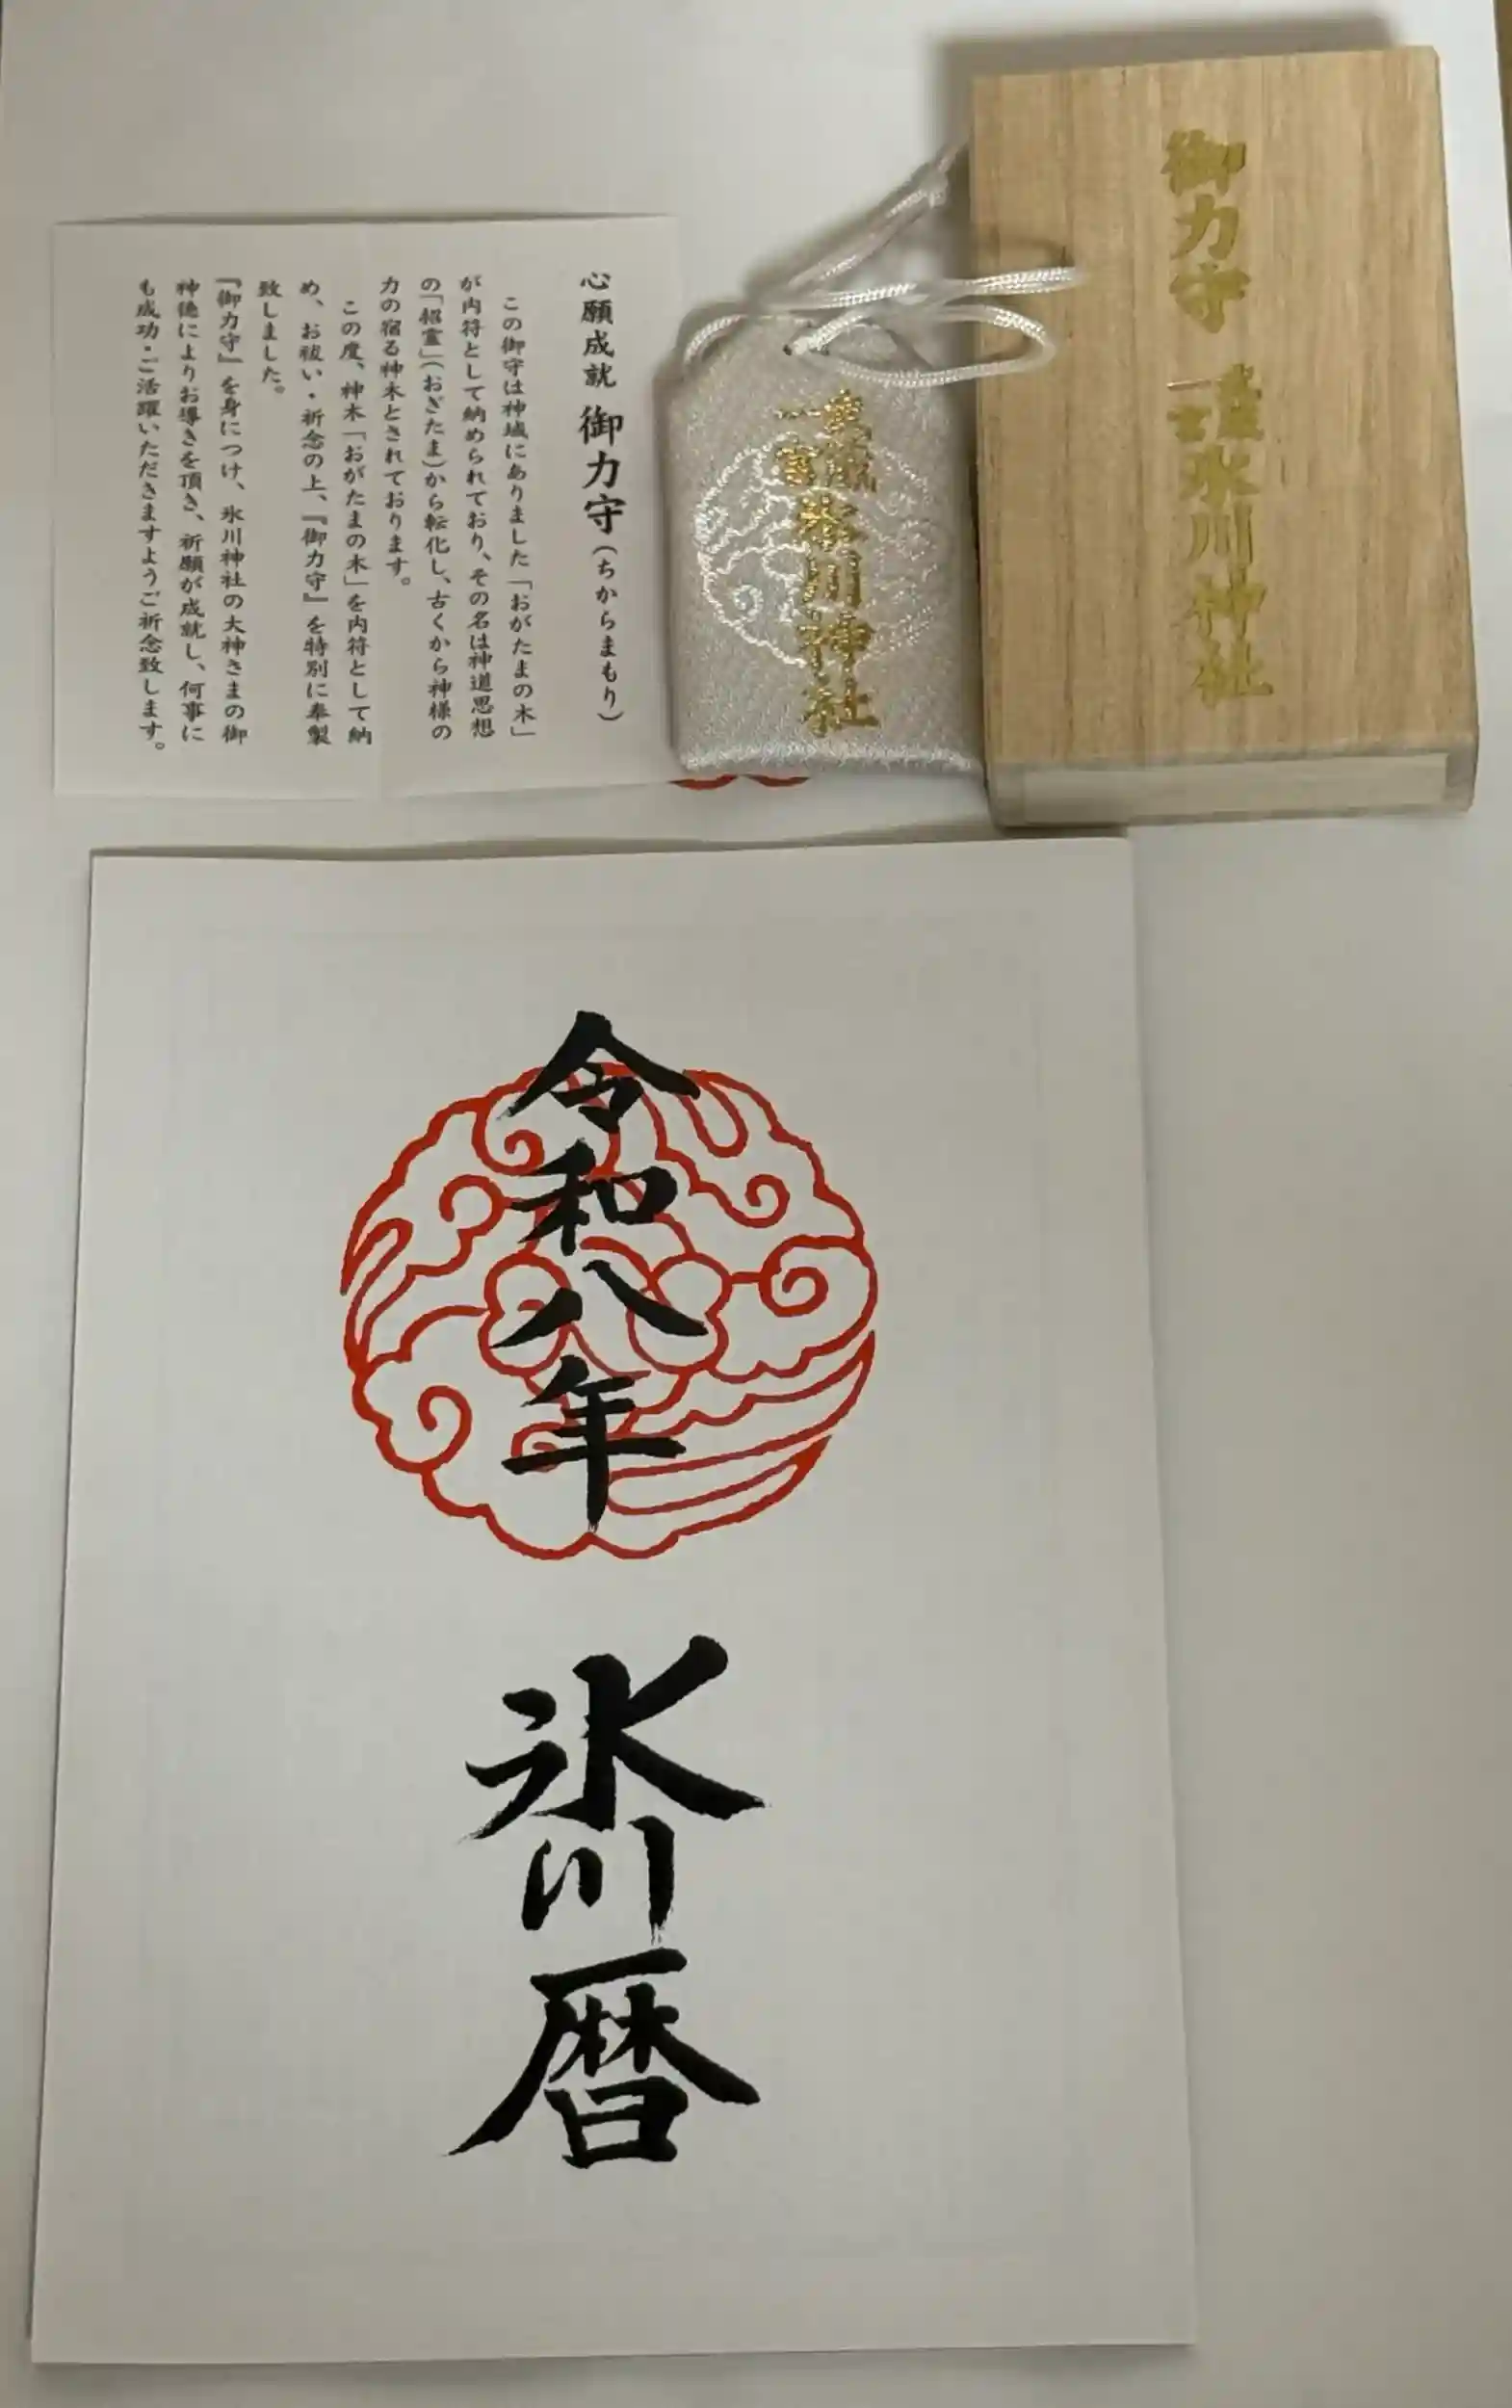 心願成就 御力守（ちからまもり）
この御守は神域にありました「おがたまの木」
が内符として納められており、その名は神道思想
の「招霊」（おぎたま）から転化し、古くから神様の
力の宿る神木とされております。
この度、神木「おがたまの木」を内符として納
め、お祓い・祈念の上、『御力守』を特別に奉製
致しました。
『御力守』を身につけ、氷川神社の大神さまの御
神徳によりお導きを頂き、祈願が成就し、何事に
も成功・ご活躍いただきますようご祈念致します。
武蔵
一宮
氷川神社
御力守
武蔵
一宮
氷川神社
令和八年
氷川暦